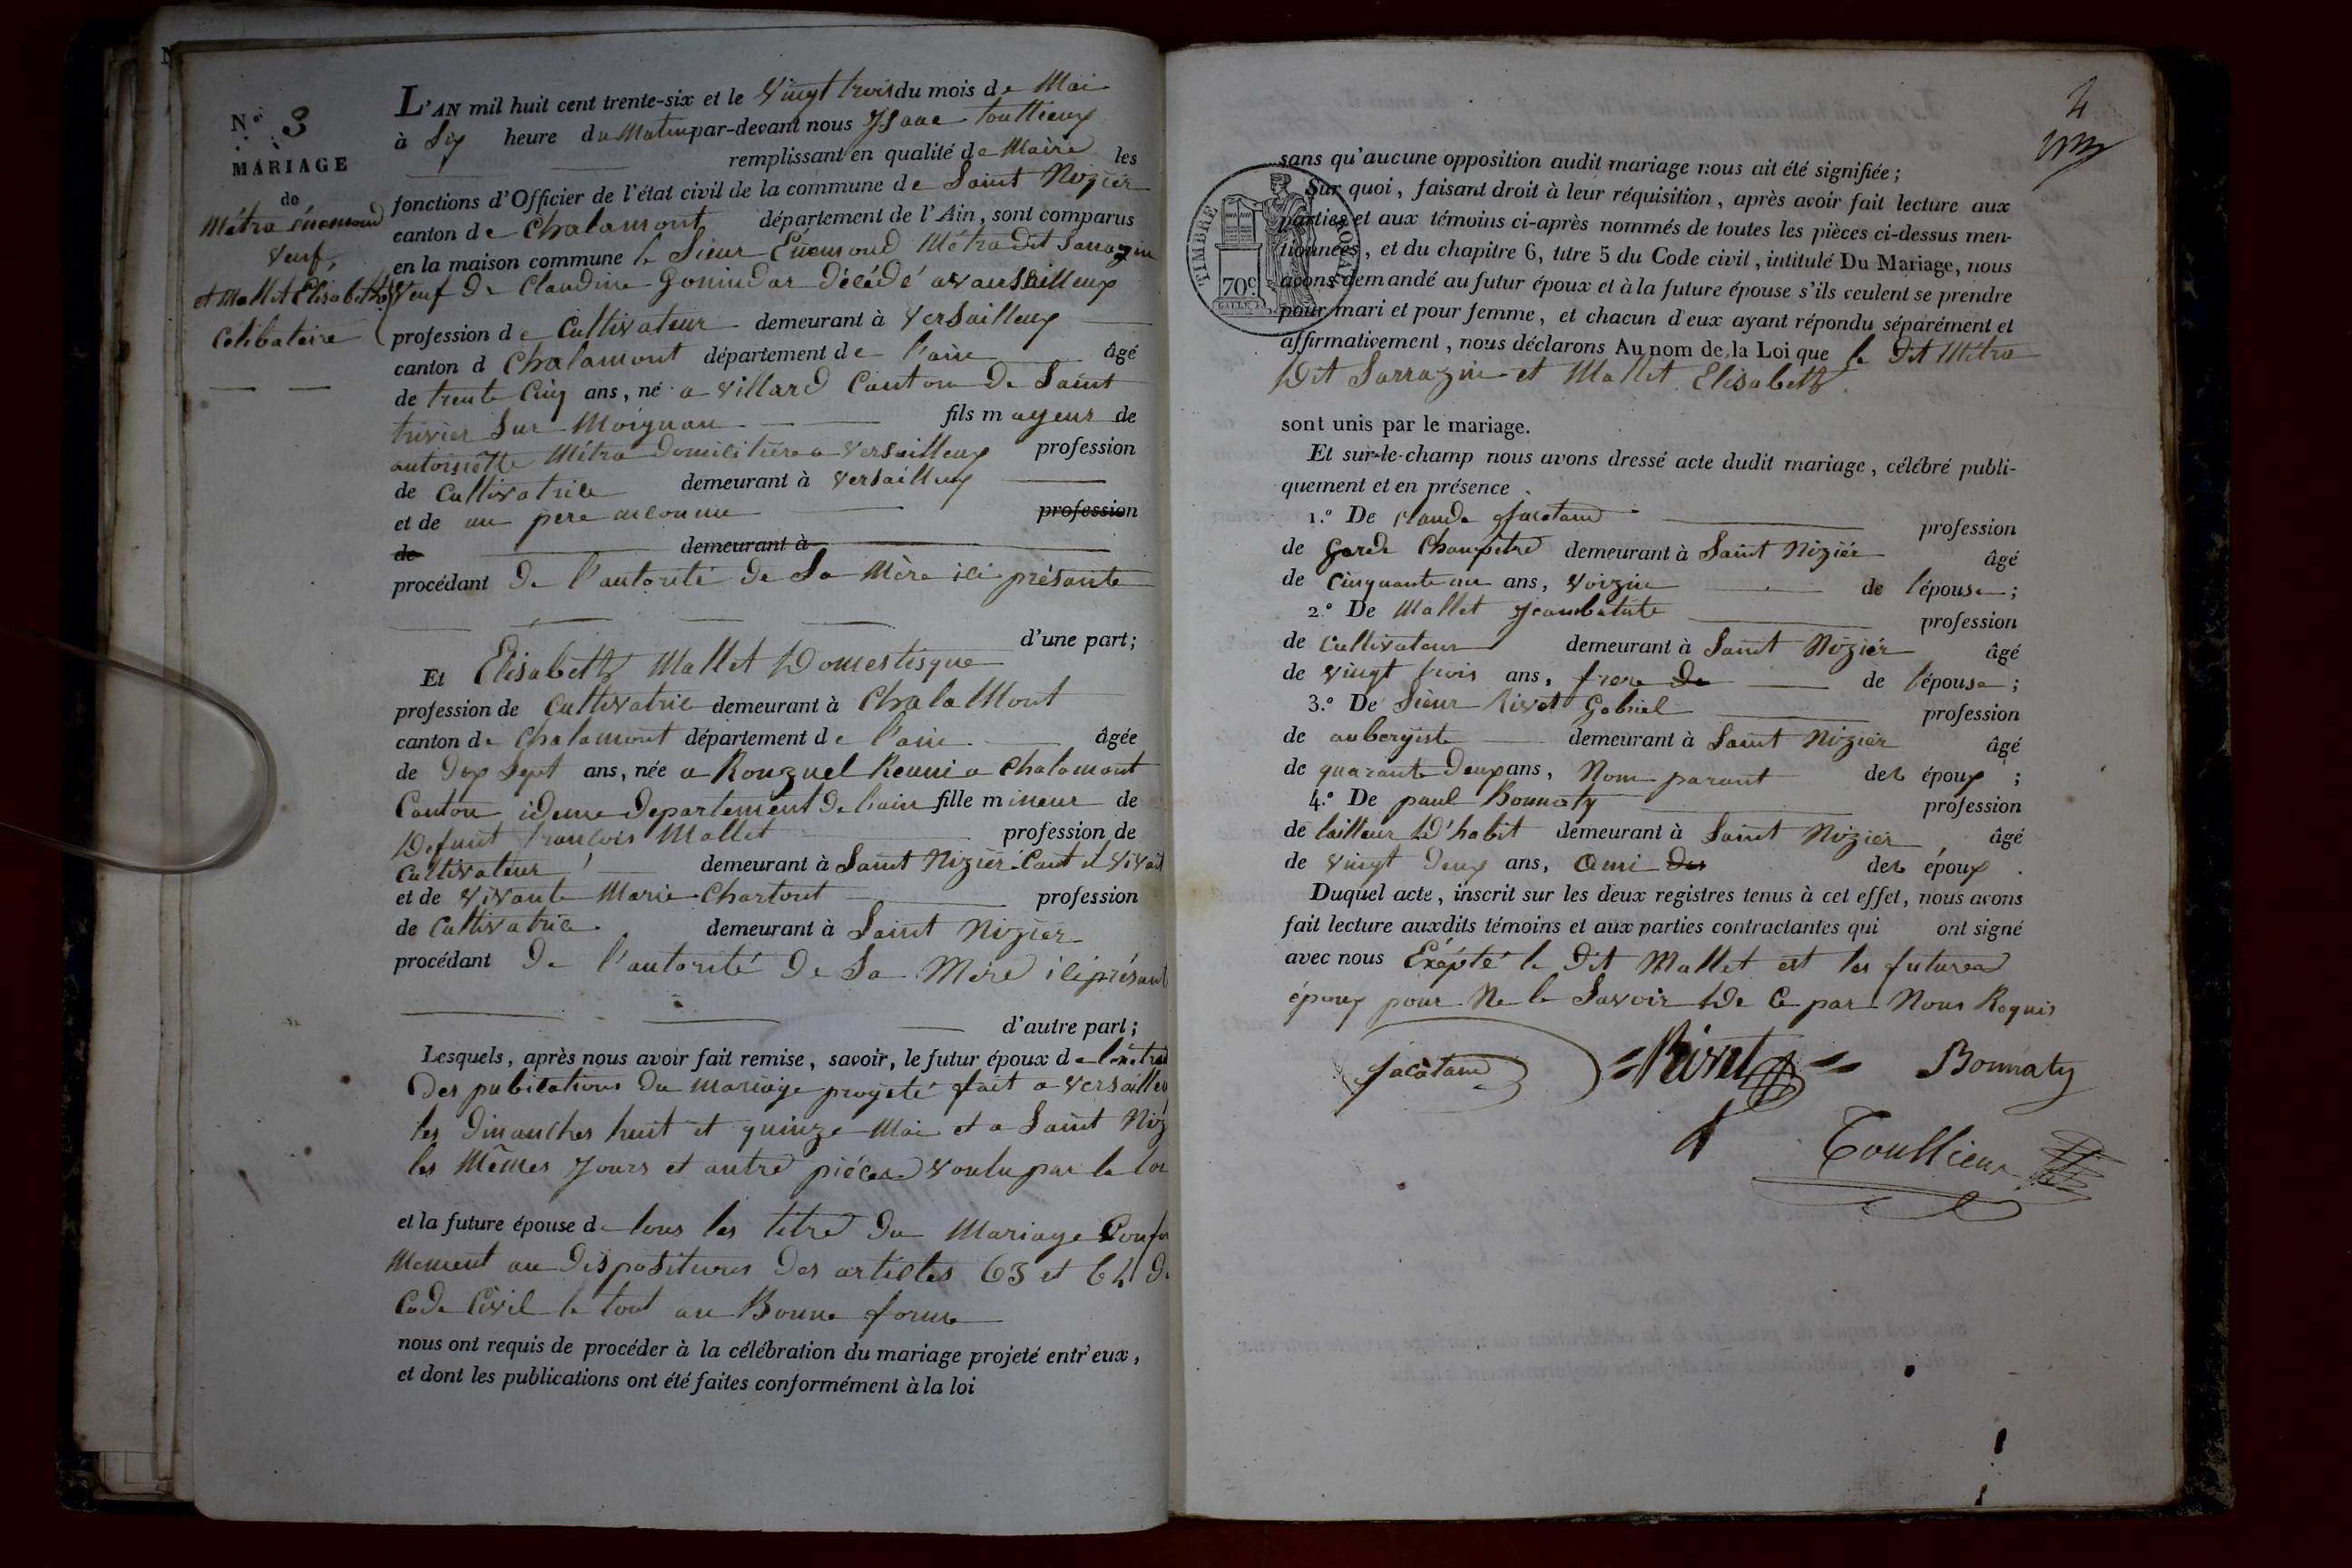 N.º 3
MARIAGE
de
Métra énemond
veuf
et Mallet Elisabeth
Célibataire
L'AN mil huit cent trente-six et le Vingt trois du mois de Mai
à Six heure du Matin par-devant nous Ysaac Toullieux
remplissant en qualité de Maire les
fonctions d'Officier de l'état civil de la commune de Saint Nizier
canton de Chalamont département de l'Ain, sont comparus
en la maison commune le Sieur Énemond Métra dit Sarrazin
veuf De Claudine Gonindar Décédé a
profession de Cultivateur demeurant à Versailleux
canton d Chalamont département de l'ain âgé
de trente Cinq ans, né a villard Canton De Saint
trivier Sur Moignan fils mayeur de
antoinette Métra Domicilière a Versailleux profession
de Cultivatrice demeurant à Versailleux
et de un pere inconnu profession
de demeurant à
procédant De l'autorité De Sa Mère ici présante
d'une part;
Et Elisabeth Mallet Domestisque
profession de Cultivatrice demeurant à ChalaMont
canton de Chalamont département de l'ain âgée
de Dix Sept ans, née a Ronzuel Reuni a Chalamont
Canton ideme Departement De l'ain fille mineur de
Defunt francois Mallet profession de
Cultivateur demeurant à Saint Nizier Cant il vivait
et de vivante Marie Chartout profession
de Cultivatrice demeurant à Saint Nizier
procédant De l'autorité De Sa Mère ici présant
d'autre part;
Lesquels, après nous avoir fait remise, savoir, le futur époux de
Des pubications Du mariage projeté fait a Versailleu
les Dimanches huit et quinze Mai et a Saint Niz
les Mêmes Jours et autre pièces voulu par la loi
et la future épouse de tous les titre Du Mariage Confor
Mement au Dispositions Des articles 63 et 64 D
Code Civil le tout an Bonne forme
nous ont requis de procéder à la célébration du mariage projeté entr'eux,
et dont les publications ont été faites conformément à la loi
4
TIMBRE ROYAL
70c
sans qu'aucune opposition audit mariage nous ait été signifiée;
Sur quoi, faisant droit à leur réquisition, après avoir fait lecture aux
parties et aux témoins ci-après nommés de toutes les pièces ci-dessus men-
tionnées, et du chapitre 6, titre 5 du Code civil, intitulé Du Mariage, nous
avons demandé au futur époux et à la future épouse s'ils veulent se prendre
pour mari et pour femme, et chacun d'eux ayant répondu séparément et
affirmativement, nous déclarons Au nom de la Loi que le Dit Métra
Dit Sarrazin et Mallet Elisabeth
sont unis par le mariage.
Et sur-le-champ nous avons dressé acte dudit mariage, célébré publi-
quement et en présence
1.º De Claude Jacatand profession
de Garde Champetre demeurant à Saint Nizier âgé
de Cinquante un ans, voizin de l'épouse;
2.º De Mallet Jeanbatiste profession
de Cultivateur demeurant à Saint Nizier âgé
de vingt trois ans, frere De de l'épouse;
3.º De Sieur Rivet Gabriel profession
de aubergiste demeurant à Saint Nizier âgé
de quarante Deux ans, Nom parant des époux;
4.º De paul Bonnaty profession
de tailleur D'habit demeurant à Saint Nizier âgé
de vingt Deux ans, ami Des des époux.
Duquel acte, inscrit sur les deux registres tenus à cet effet, nous avons
fait lecture auxdits témoins et aux parties contractantes qui ont signé
avec nous Éxépté le Dit Mallet est les futures
époux pour Ne le Savoir De Ce par Nous Requis
Jacâtand Rivet Bonnaty
Toullieux